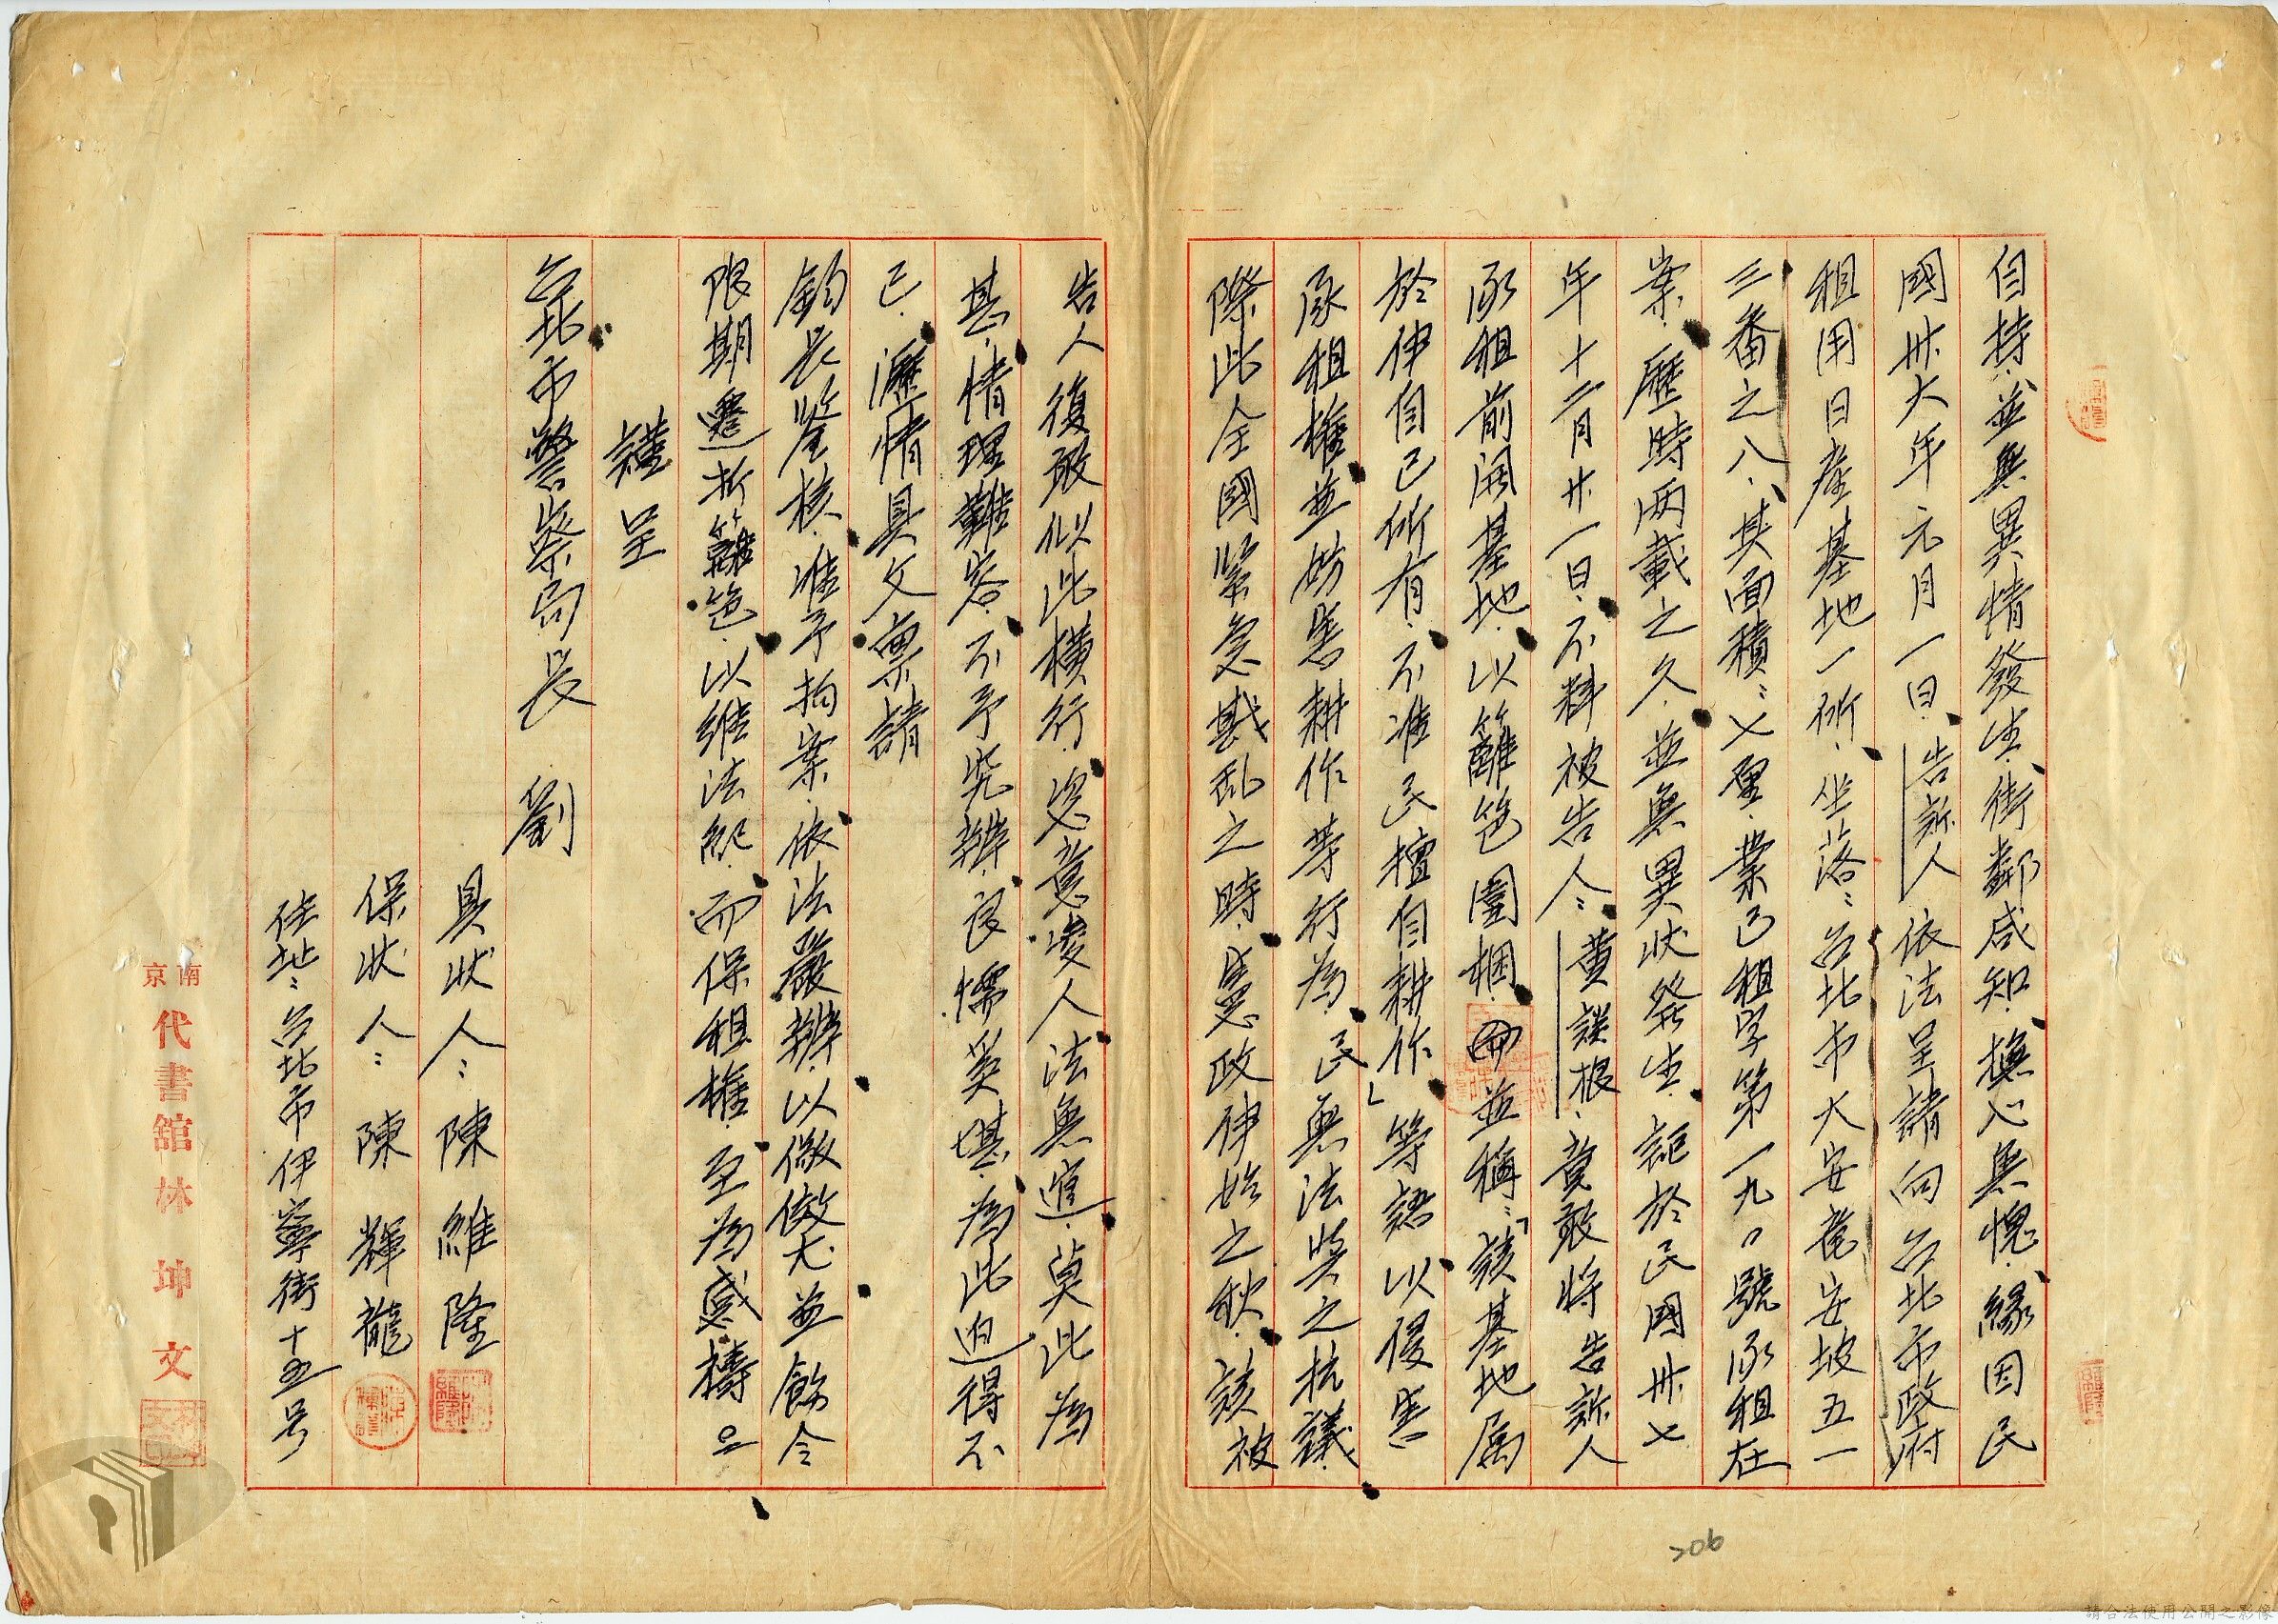 自持、並無異情發生、街鄰咸知、撫心無愧、緣因民
國卅六年元月一日、告訴人依法呈請向台北市政府
租用日產基地一所、坐落：台北市大安巷安坡五一
三番之八、其面積：七厘、業已租字第一九〇號承租在
案、歷時兩載之久、並無異狀發生、詎於民國卅七
年十二月廿一日、不料被告人：黃談根、竟敢將告訴人
承租前開基地、以籬笆圍梱、並稱：「該基地屬
於伊自己所有、不准民擅自耕作」等語、以侵害
承租權並妨害耕作等行為、民無法與之抗議
際此全國緊急戡乱之時、憲政伊始之秋、該被
告人復敢似此橫行、恣意凌人法無逭、莫此為
甚、情理難容、不予究辦、良懦奚堪、為此迫得不
已、瀝情具文稟請
鈞長鑒核、准予拘案、依法嚴辦、以儆傚尤並飭令
限期遷拆籬笆、以維法紀、而保租權、至為感禱
謹呈
台北市警察局長 劉
具狀人：陳維隆
保狀人：陳輝龍
住址：台北市伊寧街十五号
南京
代書舘林坤文
206
請合法使用公開之影像